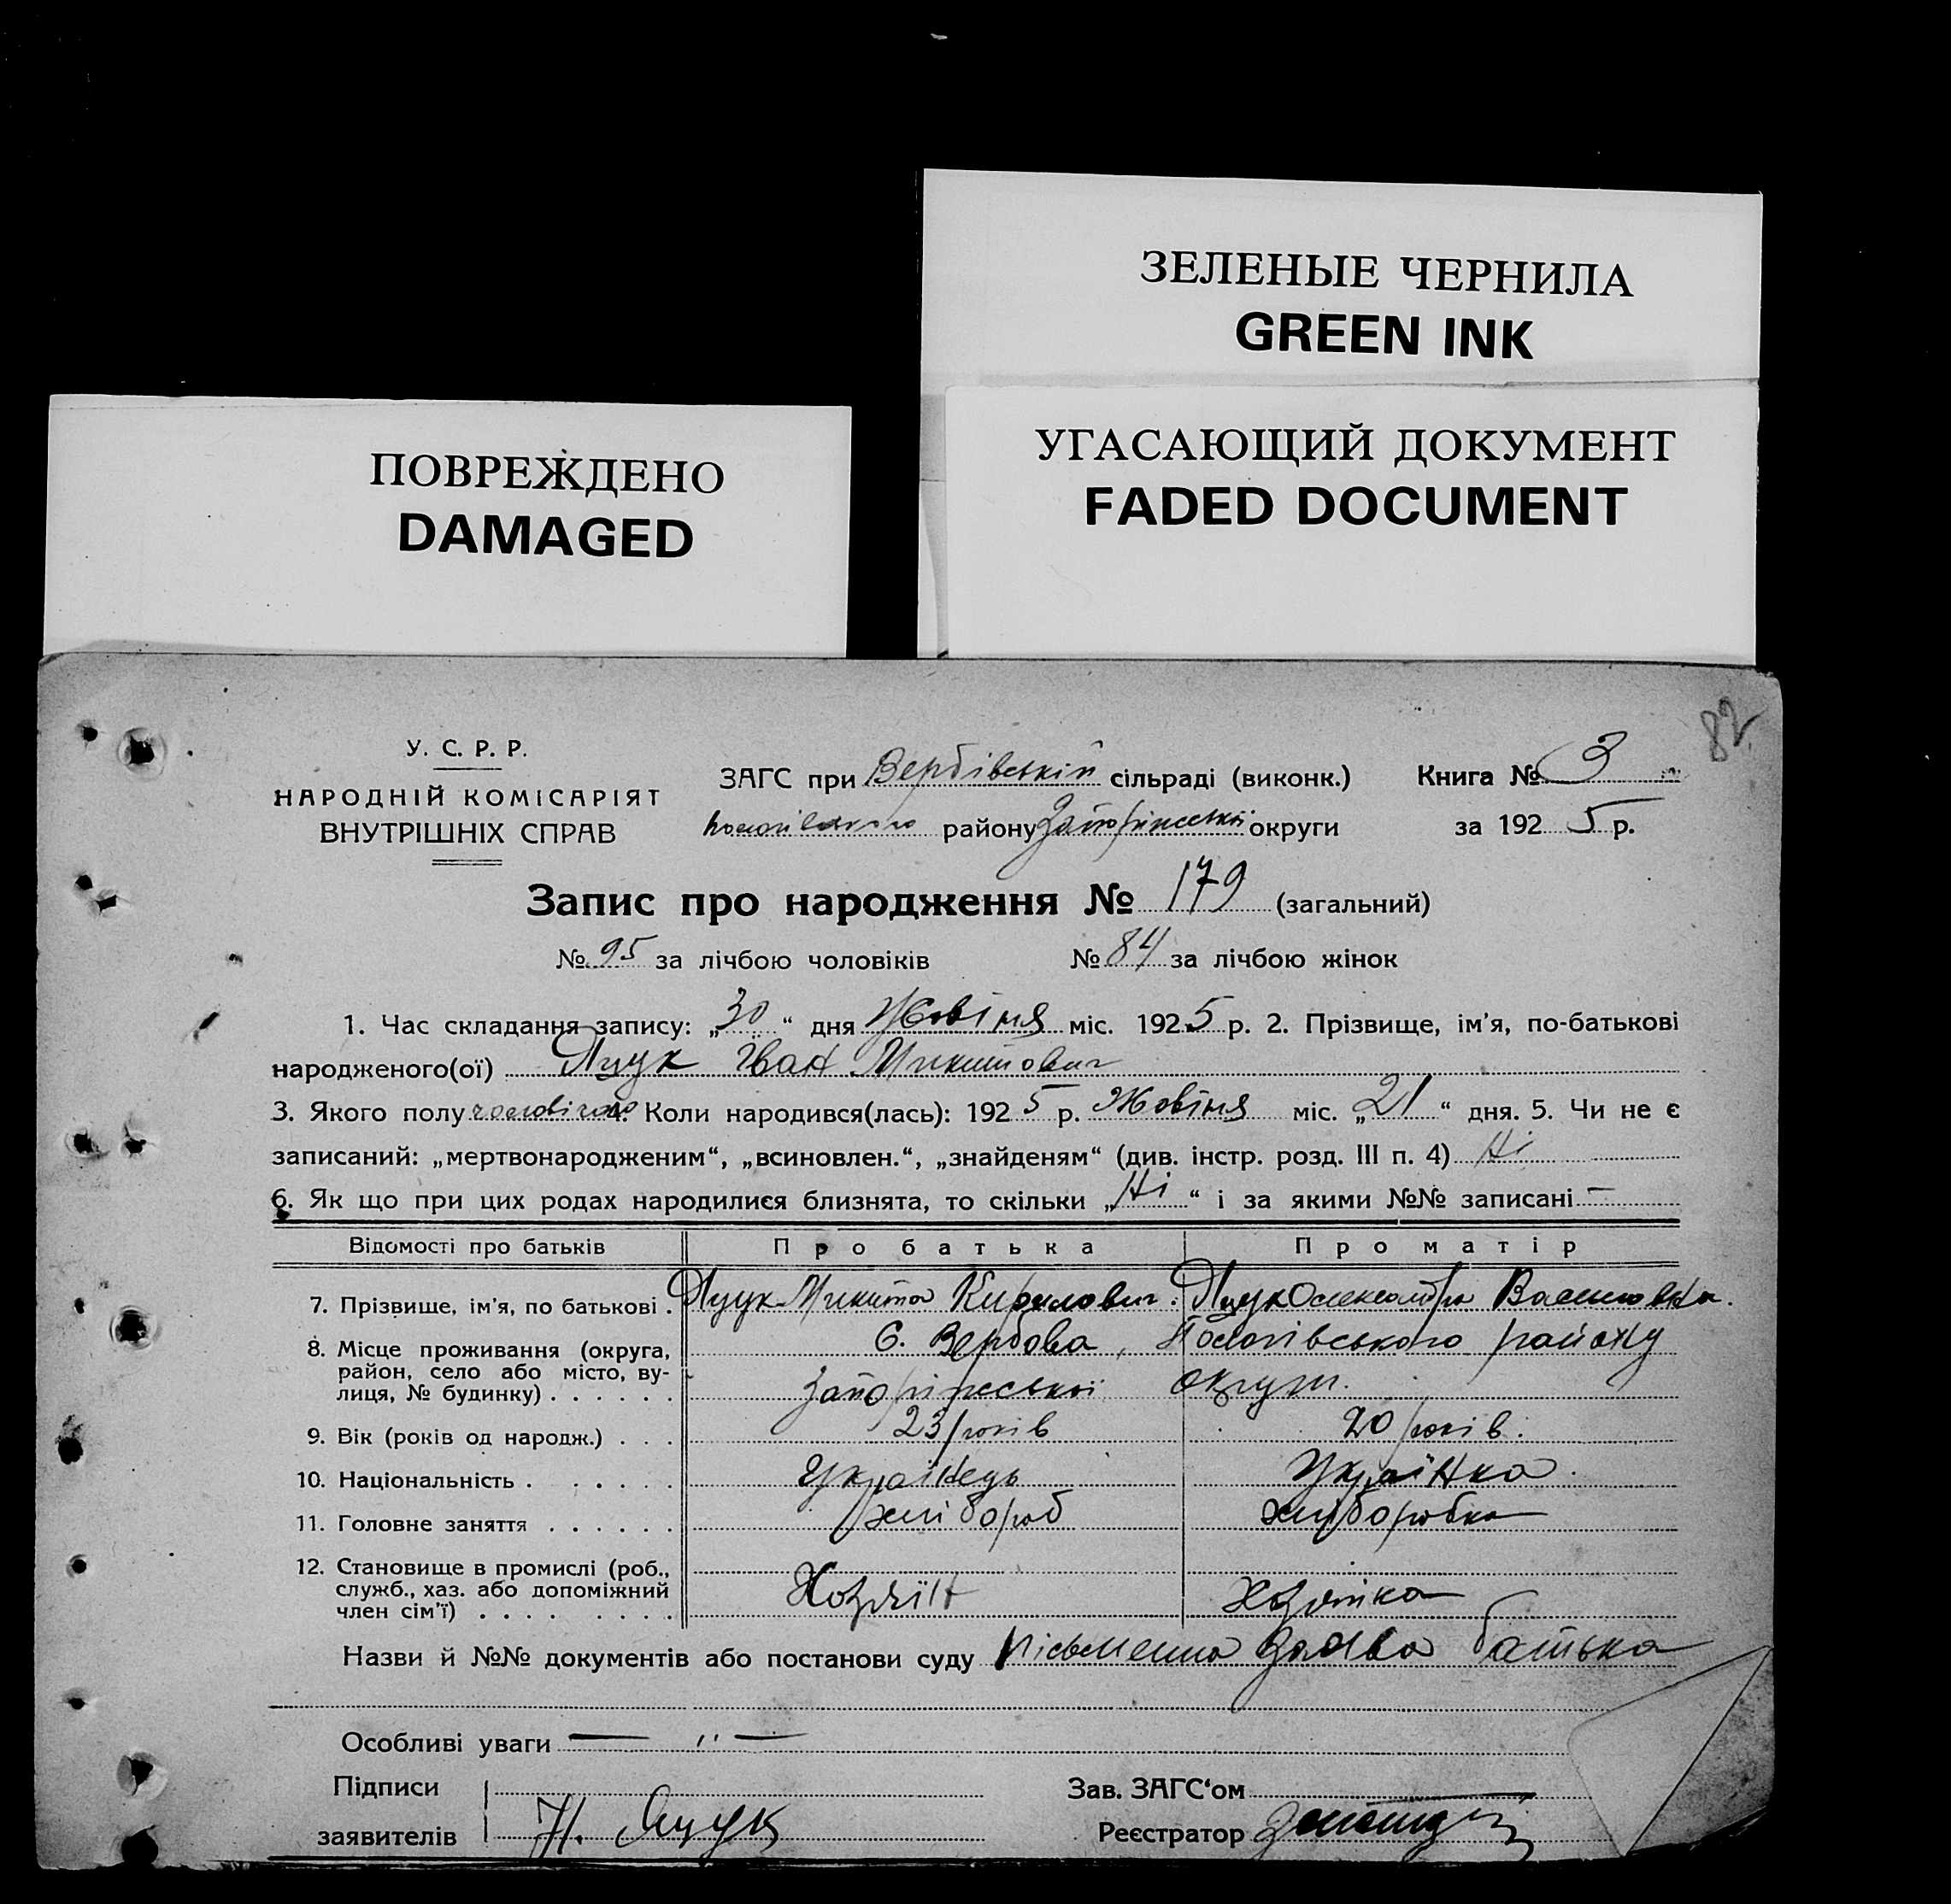 ЗЕЛЕНЫЕ ЧЕРНИЛА
GREEN INK
УГАСАЮЩИЙ ДОКУМЕНТ
FADED DOCUMENT
ПОВРЕЖДЕНО
DAMAGED
82
У. С. Р. Р.
НАРОДНІЙ КОМІСАРІЯТ
ВНУТРІШНІХ СПРАВ
ЗАГС при Вербівській сільраді (виконк.) Книга № 3
району Запоріжської округи за 1925 р.
Запис про народження № 179 (загальний)
№ 95 за лічбою чоловіків № 84 за лічбою жінок
1. Час складання запису: „30“ дня Жовтня міс. 1925 р. 2. Прізвище, ім'я, по-батькові
народженого(ої) Яцук Іван Микитович
3. Якого полу чоловічого 4. Коли народився(лась): 1925 р. Жовтня міс. „21“ дня. 5. Чи не є
записаний: „мертвонародженим“, „всиновлен.“, „знайденям“ (див. інстр. розд. III п. 4) Ні
6. Як що при цих родах народилися близнята, то скільки „Ні“ і за якими №№ записані —
Відомості про батьків Про батька Про матір
7. Прізвише, ім'я, по батькові . Яцук Микита Кирилович. Яцук Олександра Василівна.
8. Місце проживання (округа, район, село або місто, вулиця, № будинку) . . . . . . С. Вербова, Пологівського району
Запоріжської округи.
9. Вік (років од народж.) . . . 23 років 20 років.
10. Національність . . . . . . Українець Українка.
11. Головне заняття . . . . . . хлібороб хліборобка
12. Становище в промислі (роб., служб., хаз. або допоміжний член сім'ї) . . . . . . . . Хозяїн Хозяйка
Назви й №№ документів або постанови суду Письменна заява батька
Особливі уваги — " —
Підписи Зав. ЗАГС'ом
заявителів Н. Яцук Реєстратор